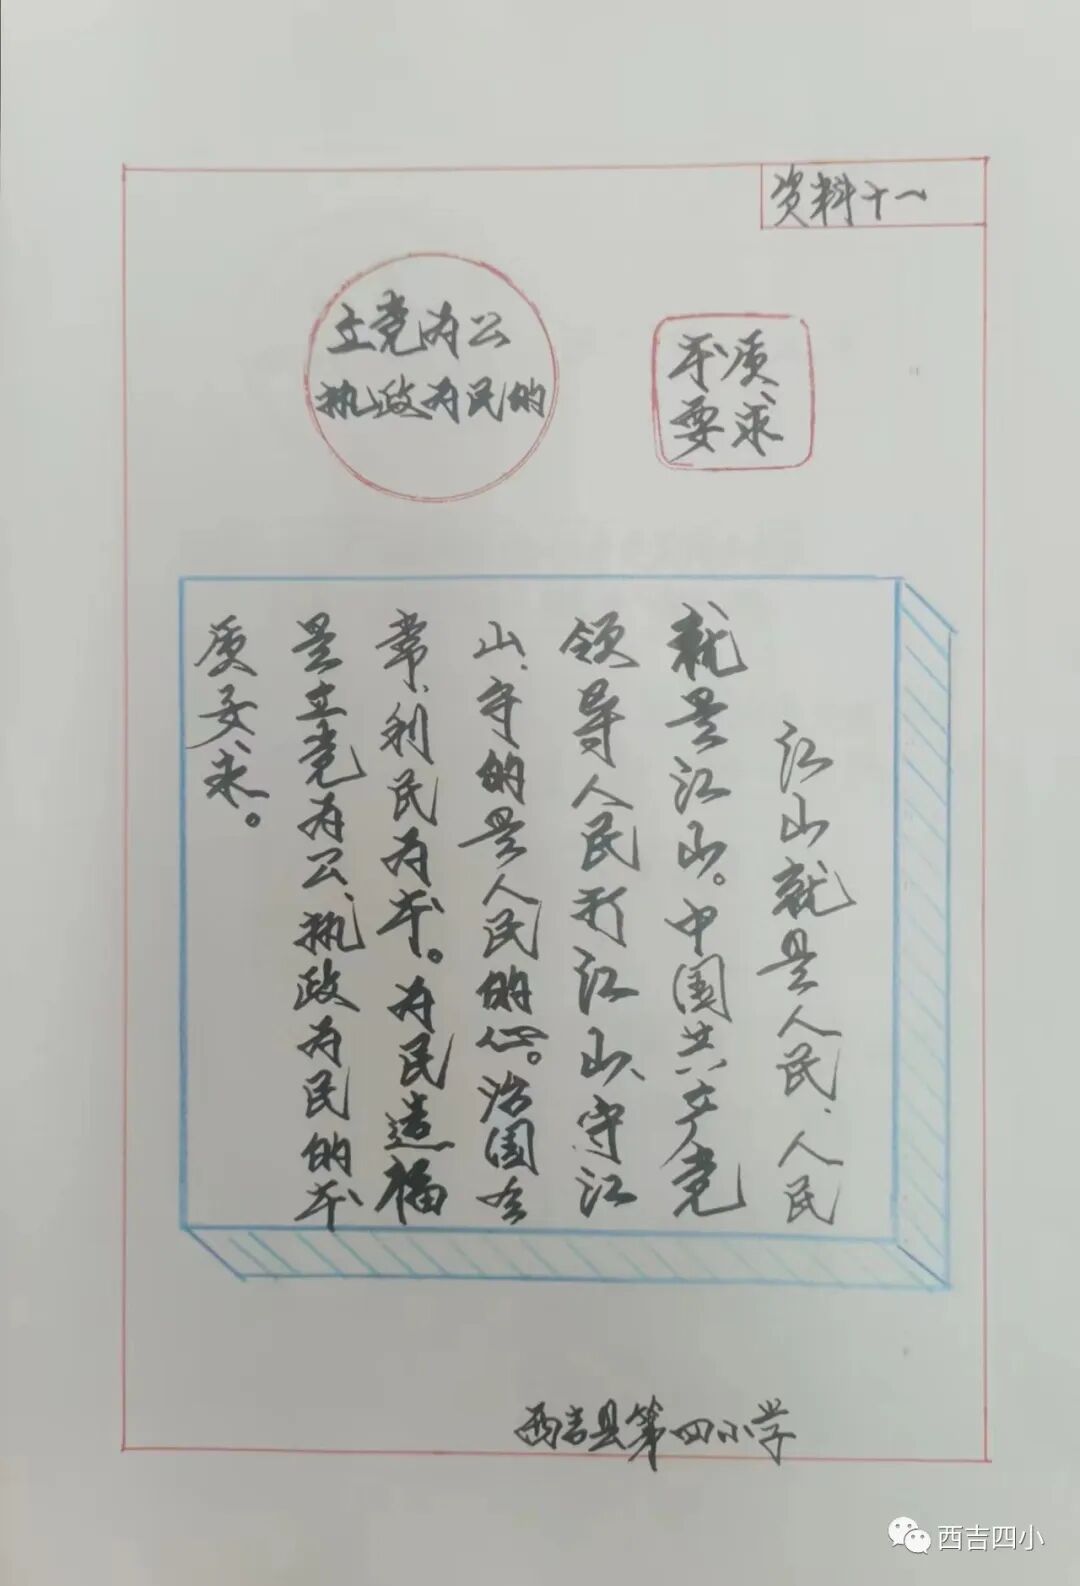 资料十一
立党为公
执政为民的
本质
要求
江山就是人民、人民
就是江山。中国共产党
领导人民打江山、守江
山、守的是人民的心。治国有
常、利民为本。为民造福
是立党为公、执政为民的本
质要求。
西吉县第四小学
西吉四小